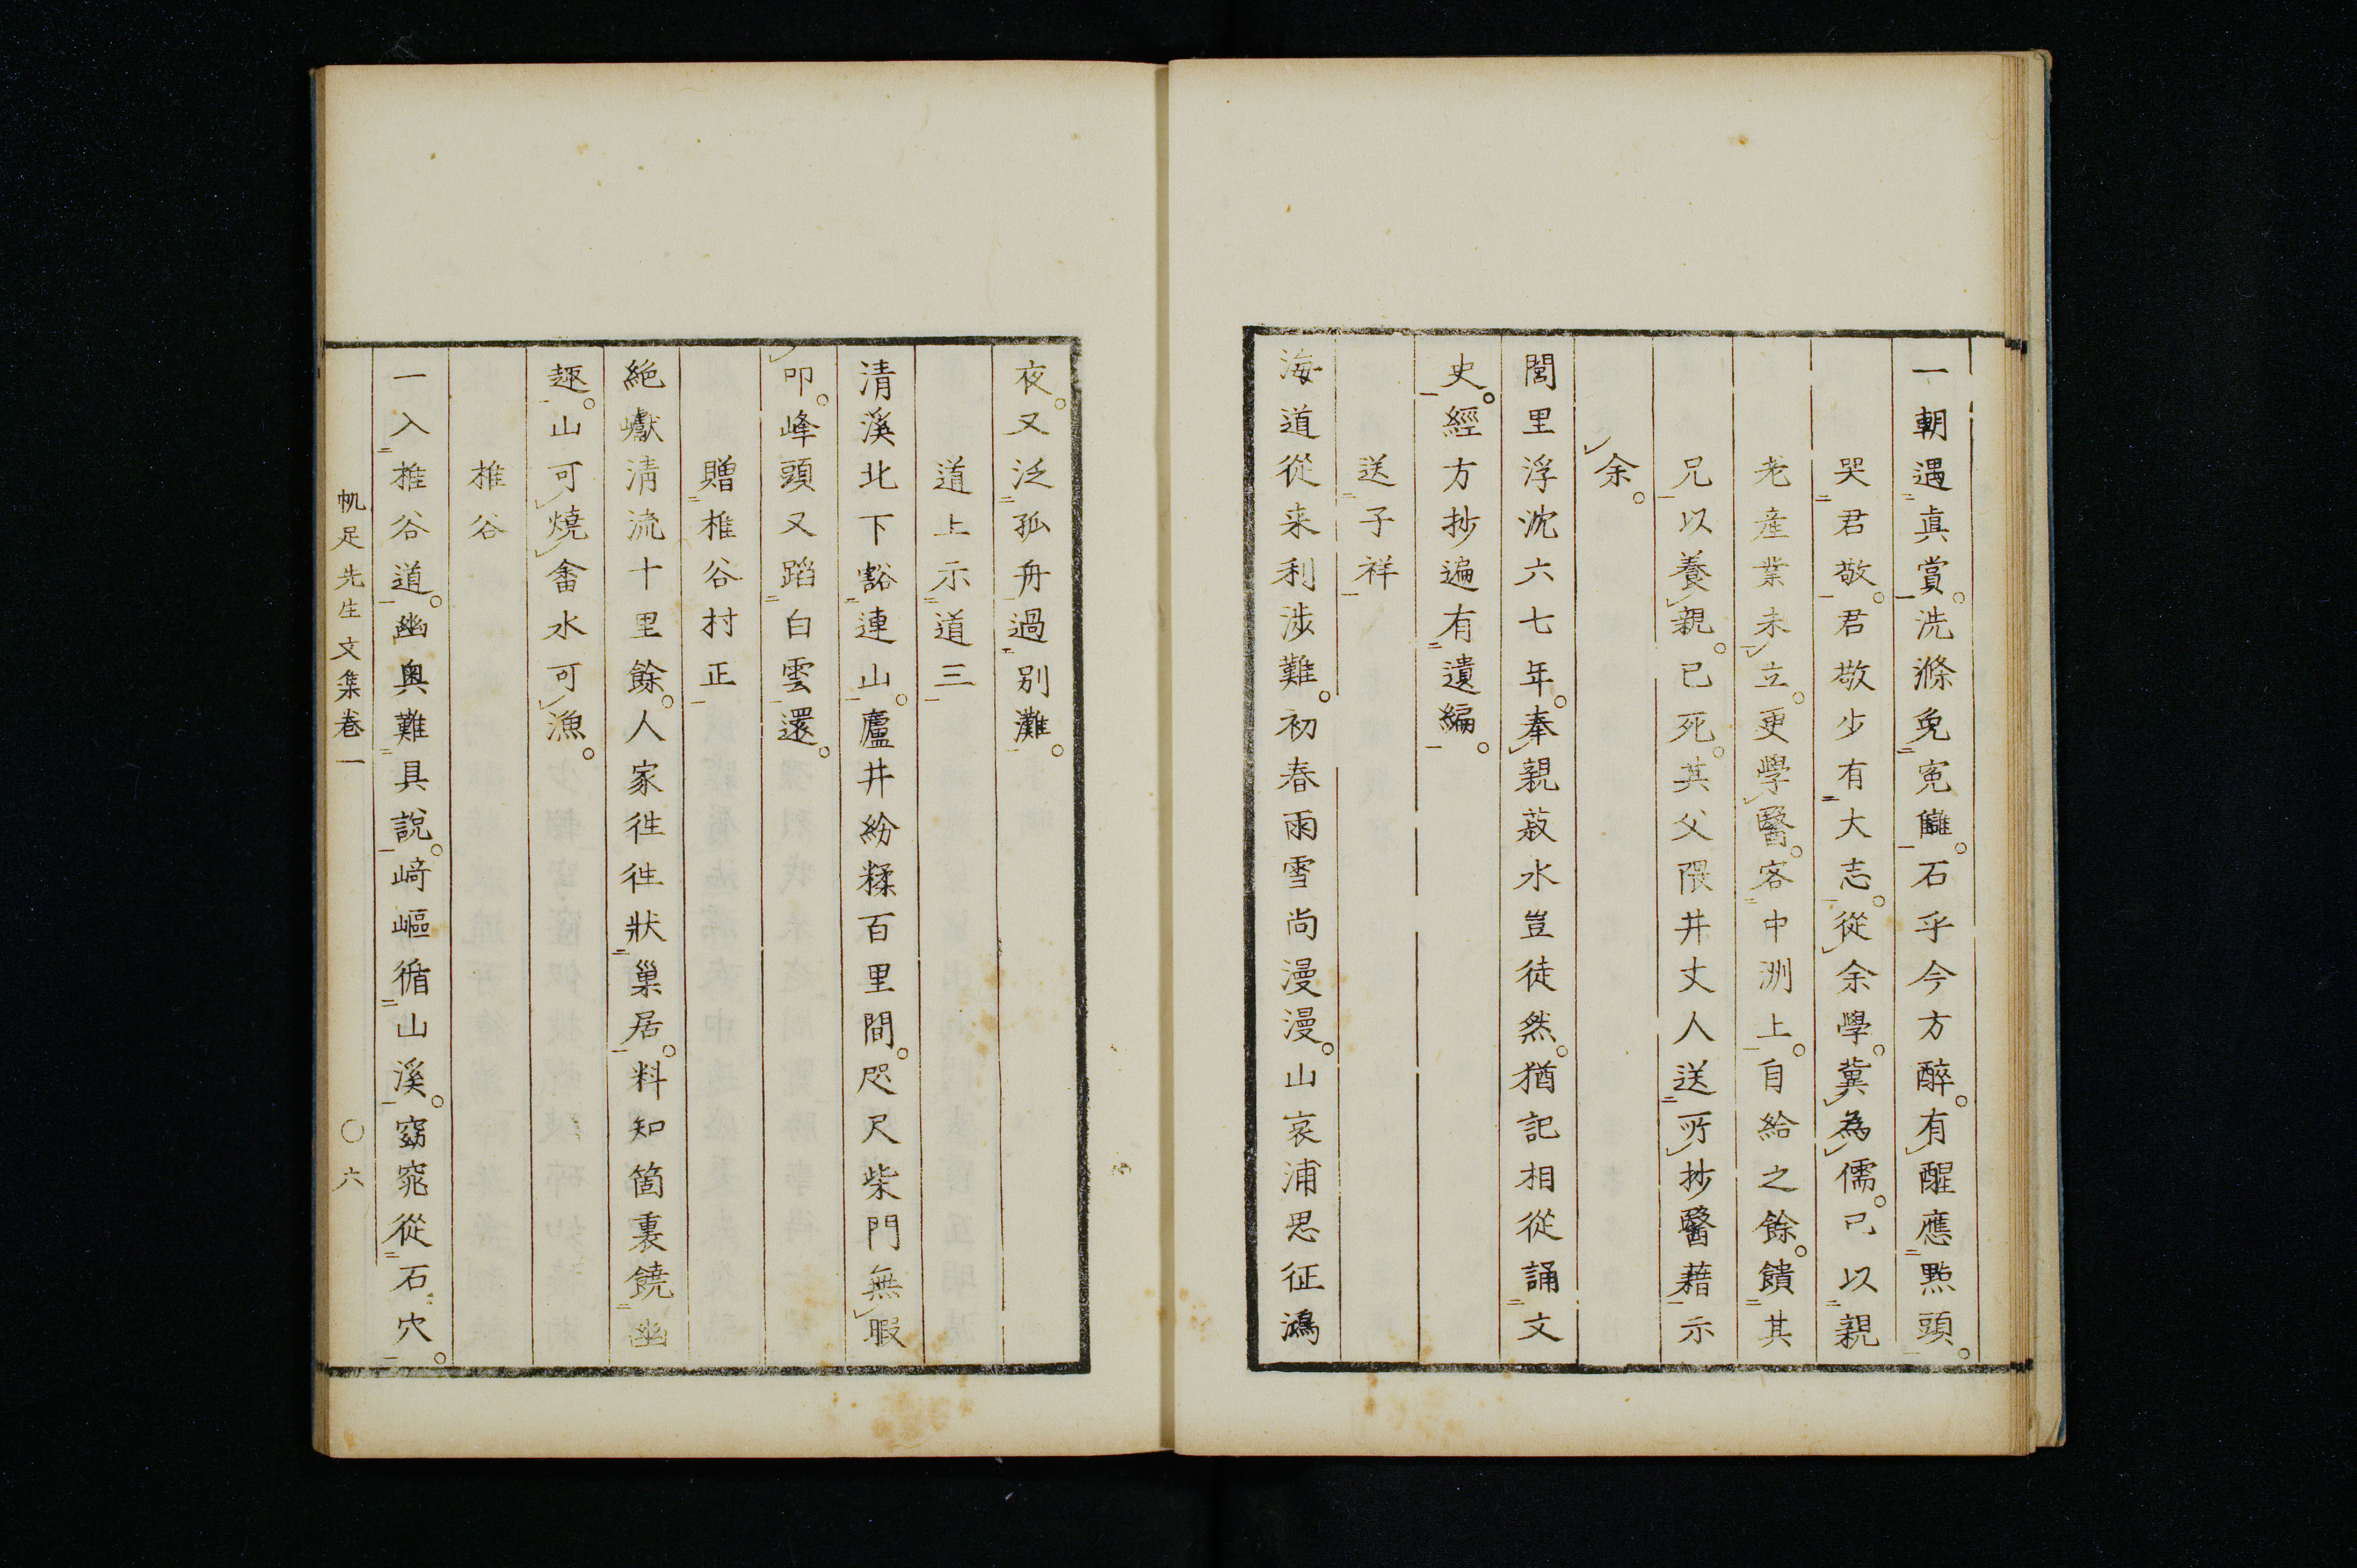 一朝遇真賞。洗滌免寃讎。石乎今方醉。有醒應㸃頭。
哭君敬。君敬少有大志。從余學。冀為儒。已以親
老産業未立。更學醫。客中洲上。自給之餘。饋其
兄以養親。已死。其父隈井丈人送所抄醫藉示
余。
閭里浮沈六七年。奉親菽水豈徒然。猶記相從誦文
史。經方抄遍有遺編。
送子祥
海道從来利涉難。初春雨雪尚漫漫。山哀浦思征鴻
夜。又泛孤舟過別灘。
道上示道三
清溪北下豁連山。廬井紛糅百里間。咫尺柴門無暇
叩。峰頭又蹈白雲還。
贈椎谷村正
絶巘清流十里餘。人家徃徃狀巢居。料知箇裏饒幽
趣。山可燒畬水可漁。
椎谷
一入椎谷道。幽奥難具說。崎嶇循山溪。窈窕從石穴。
帆足先生文集卷一 〇六